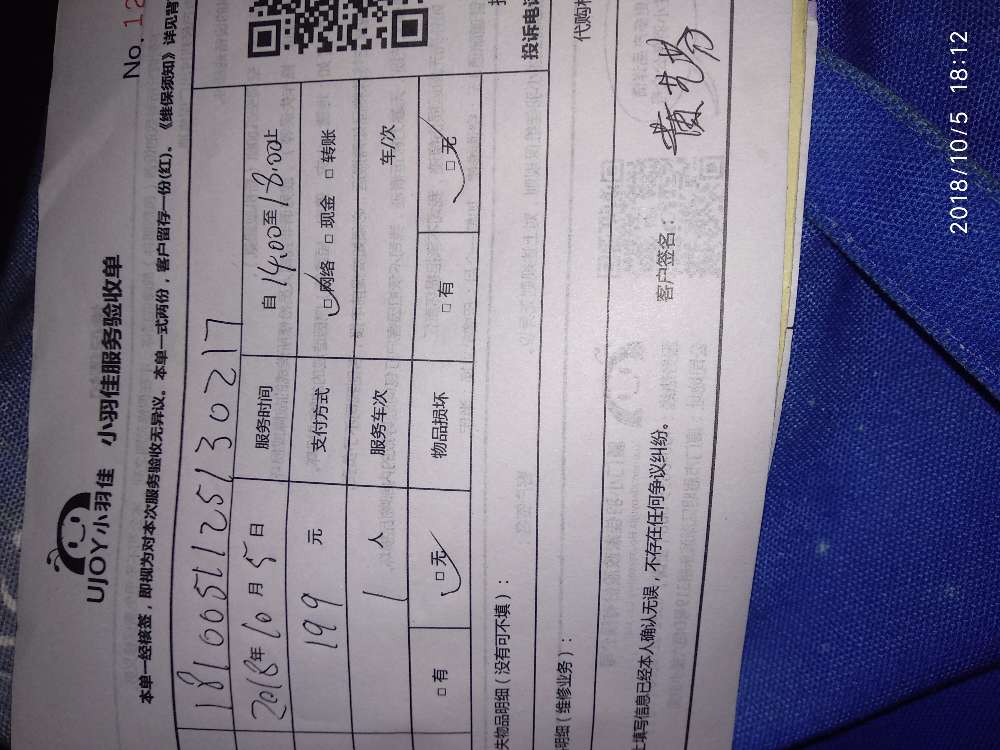 No. 12
UJOY小羽佳 小羽佳服务验收单
本单一经核签，即视为对本次服务验收无异议。本单一式两份，客户留存一份(红)。《维保须知》详见背
181005112513130217
2018年10月5日 服务时间 自14.00至18.00止
199元 支付方式 □网络 □现金 □转账
1人 服务车次 车/次
□有 □无 物品损坏 □有 □无
失物品明细（没有可不填）：
投诉电话
明细（维修业务）：
代购
填写信息已经本人确认无误，不存在任何争议纠纷。
客户签名：
2018/10/5 18:12